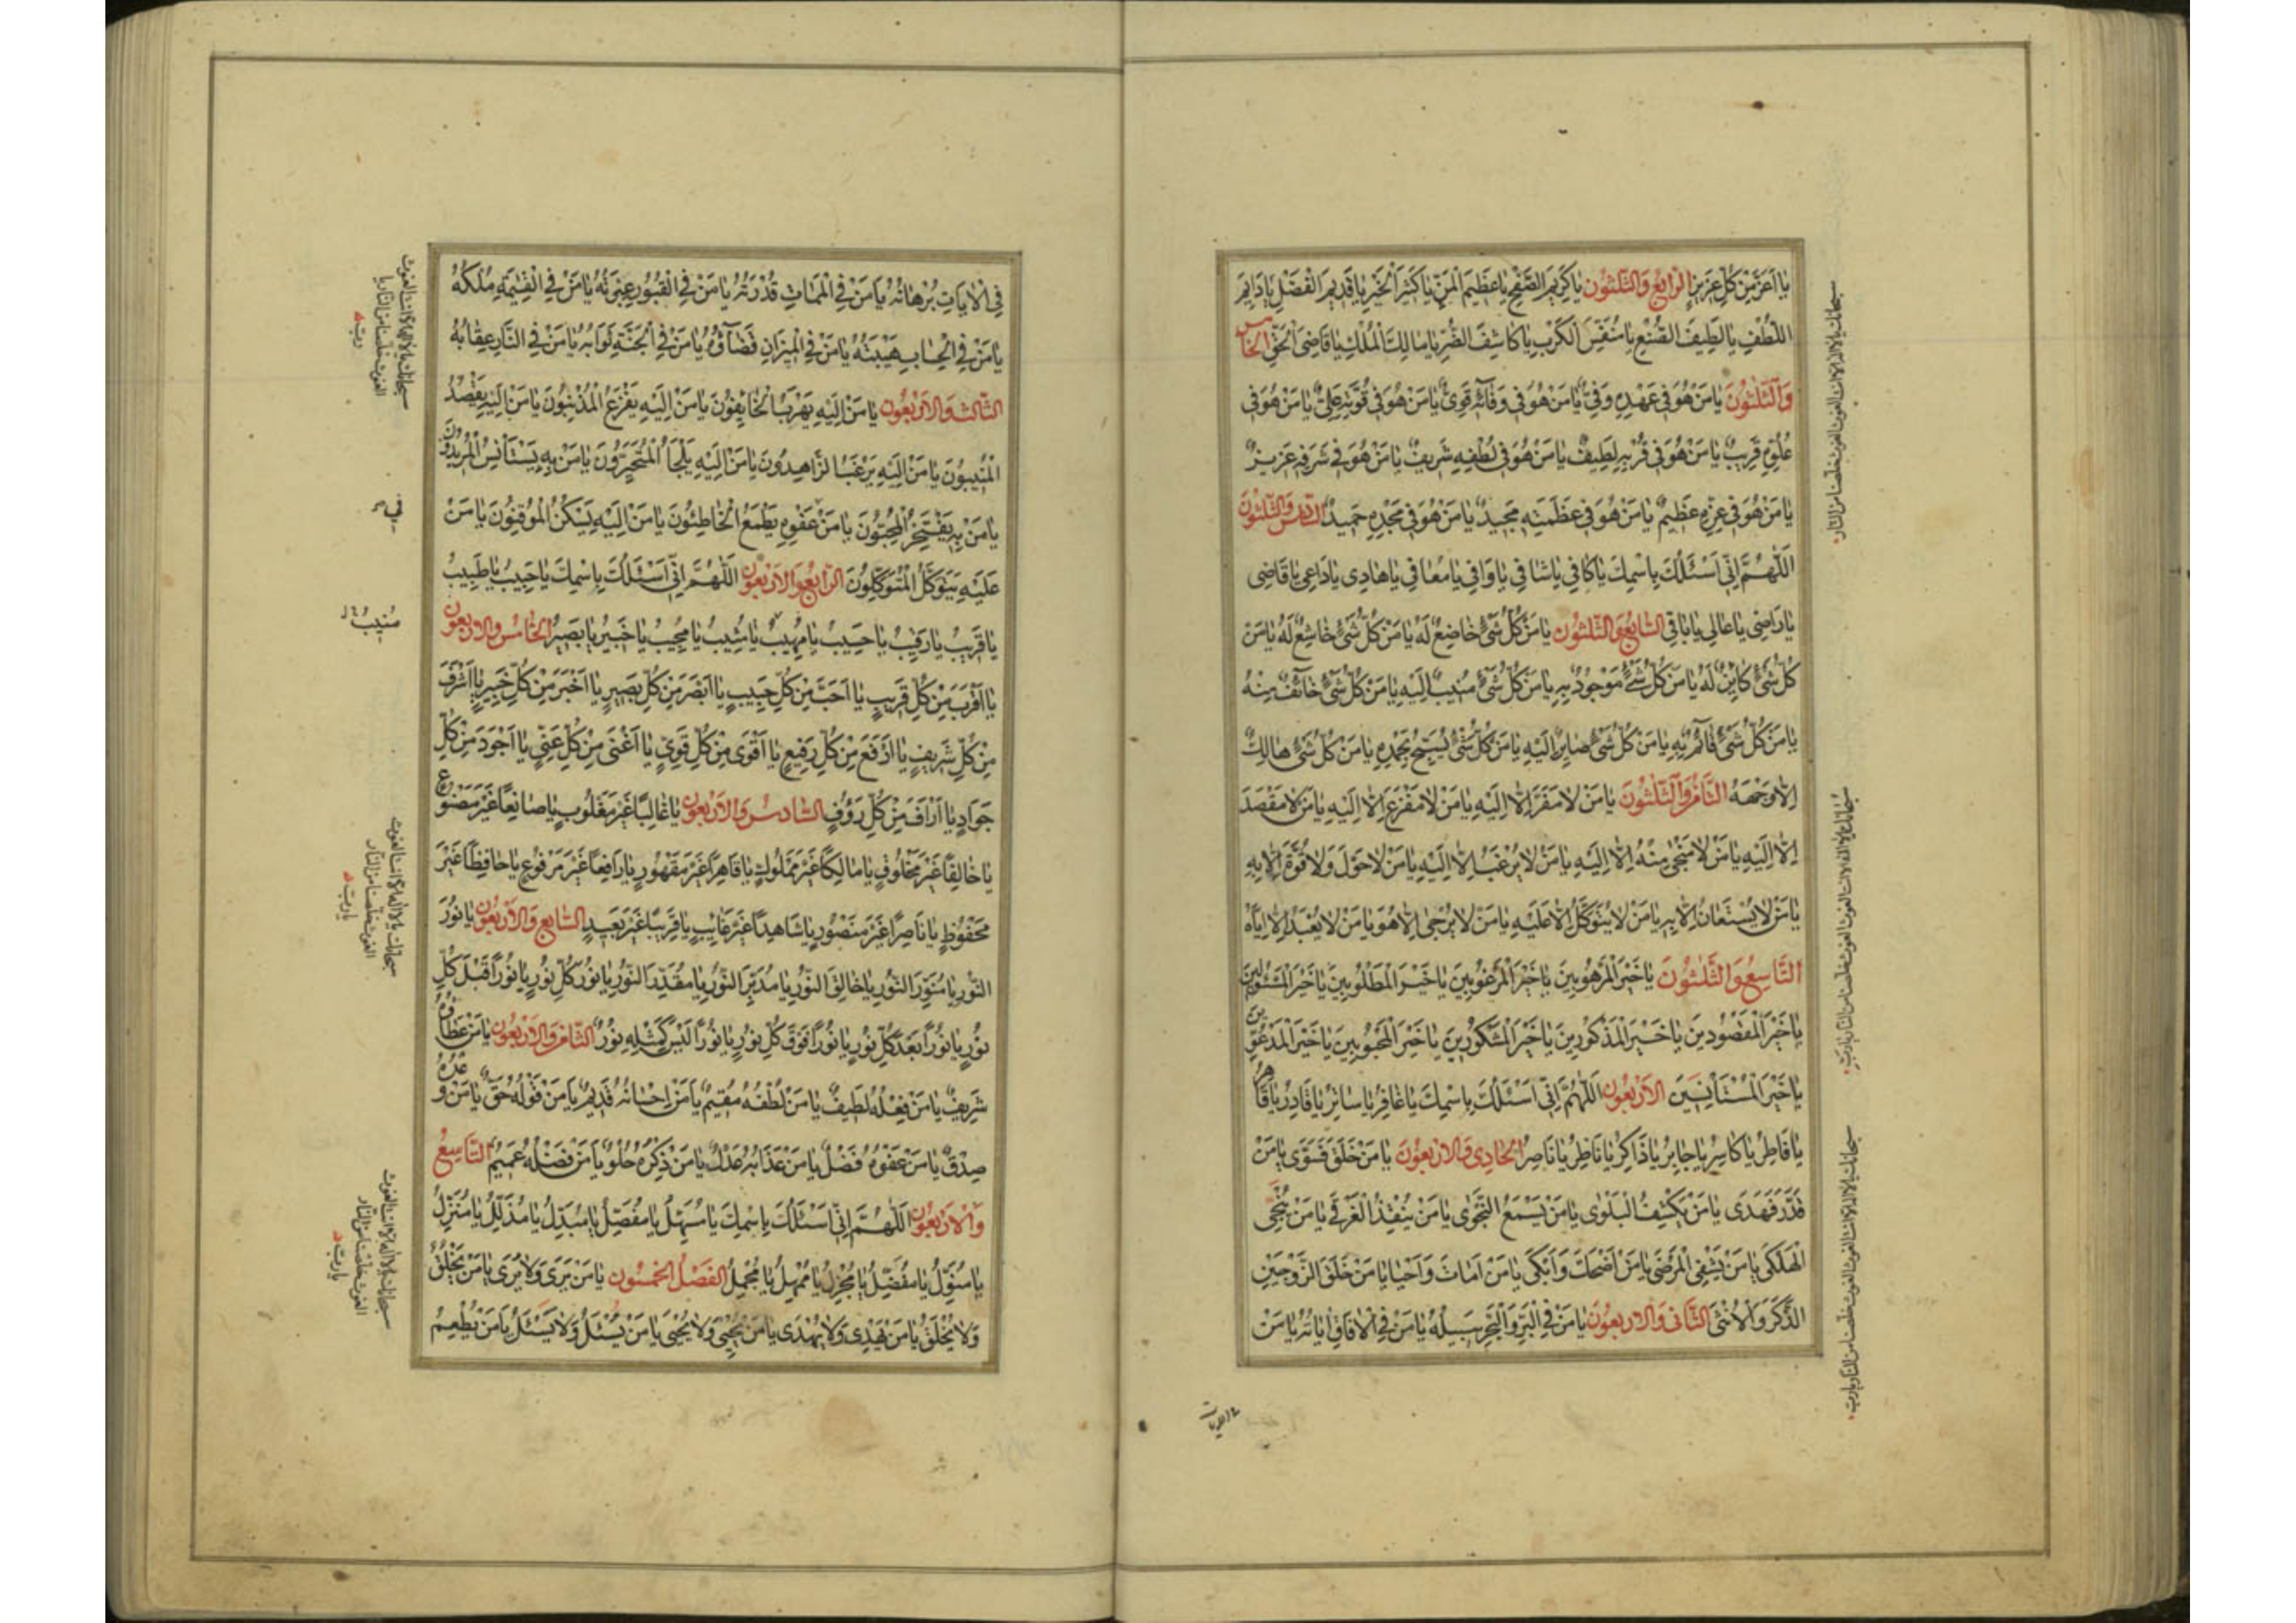 يا اَعَزَّ مِنْ كُلِّ عَزيزٍ الرابع والثلثون يا كَريمَ الصَّفْحِ يا عَظيمَ الْمَنِّ يا كَثيرَ الْخَيْرِ يا قَديمَ الْفَضْلِ يا دائِمَ
اللُّطْفِ يا لَطيفَ الصُّنْعِ يا مُنَفِّسَ الْكَرْبِ يا كاشِفَ الضُّرِّ يا مالِكَ الْمُلْكِ يا قاضِيَ الْحَقِّ الخامس
وَالثلثون يا مَنْ هُوَ في عَهْدِهِ وَفِيٌّ يا مَنْ هُوَ في وَفائِهِ قَوِيٌّ يا مَنْ هُوَ في قُوَّتِهِ عَلِيٌّ يا مَنْ هُوَ في
عُلُوِّهِ قَريبٌ يا مَنْ هُوَ في قُرْبِهِ لَطيفٌ يا مَنْ هُوَ في لُطْفِهِ شَريفٌ يا مَنْ هُوَ في شَرَفِهِ عَزيزٌ
يا مَنْ هُوَ في عِزِّهِ عَظيمٌ يا مَنْ هُوَ في عَظَمَتِهِ مَجيدٌ يا مَنْ هُوَ في مَجْدِهِ حَميدٌ السادس والثلثون
اَللّهُمَّ اِنّي اَسْئَلُكَ بِاسْمِكَ يا كافي يا شافي يا وافي يا مُعافي يا هادي يا داعي يا قاضي
يا راضي يا عالي يا باقي السابع والثلثون يا مَنْ كُلُّ شَيْءٍ خاضِعٌ لَهُ يا مَنْ كُلُّ شَيْءٍ خاشِعٌ لَهُ يا مَنْ
كُلُّ شَيْءٍ كائِنٌ لَهُ يا مَنْ كُلُّ شَيْءٍ مَوْجُودٌ بِهِ يا مَنْ كُلُّ شَيْءٍ مُنيبٌ اِلَيْهِ يا مَنْ كُلُّ شَيْءٍ خائِفٌ مِنْهُ
يا مَنْ كُلُّ شَيْءٍ قائِمٌ بِهِ يا مَنْ كُلُّ شَيْءٍ صايِرٌ اِلَيْهِ يا مَنْ كُلُّ شَيْءٍ يُسَبِّحُ بِحَمْدِهِ يا مَنْ كُلُّ شَيْءٍ هالِكٌ
اِلّا وَجْهَهُ الثامن والثلثون يا مَنْ لا مَفَرَّ اِلّا اِلَيْهِ يا مَنْ لا مَفْزَعَ اِلّا اِلَيْهِ يا مَنْ لا مَقْصَدَ
اِلّا اِلَيْهِ يا مَنْ لا مَنْجى مِنْهُ اِلّا اِلَيْهِ يا مَنْ لا يُرْغَبُ اِلّا اِلَيْهِ يا مَنْ لا حَوْلَ وَلا قُوَّةَ اِلّا بِهِ
يا مَنْ لا يُسْتَعانُ اِلّا بِهِ يا مَنْ لا يُتَوَكَّلُ اِلّا عَلَيْهِ يا مَنْ لا يُرْجى اِلّا هُوَ يا مَنْ لا يُعْبَدُ اِلّا اِيّاهُ
التاسع والثلثون يا خَيْرَ الْمَرْهُوبينَ يا خَيْرَ الْمَرْغُوبينَ يا خَيْرَ الْمَطْلُوبينَ يا خَيْرَ الْمَسْئُولينَ
يا خَيْرَ الْمَقْصُودينَ يا خَيْرَ الْمَذْكُورينَ يا خَيْرَ الْمَشْكُورينَ يا خَيْرَ الْمَحْبُوبينَ يا خَيْرَ الْمَدْعُوّينَ
يا خَيْرَ الْمُسْتَأْنِسينَ الاربعون اَللّهُمَّ اِنّي اَسْئَلُكَ بِاسْمِكَ يا غافِرُ يا ساتِرُ يا قادِرُ يا قاهِرُ
يا فاطِرُ يا كاسِرُ يا جابِرُ يا ذاكِرُ يا ناظِرُ يا ناصِرُ الحادي والاربعون يا مَنْ خَلَقَ فَسَوّى يا مَنْ
قَدَّرَ فَهَدى يا مَنْ يَكْشِفُ الْبَلْوى يا مَنْ يَسْمَعُ النَّجْوى يا مَنْ يُنْقِذُ الْغَرْقى يا مَنْ يُنْجِي
الْهَلْكى يا مَنْ يَشْفِي الْمَرْضى يا مَنْ اَضْحَكَ وَاَبْكى يا مَنْ اَماتَ وَاَحْيا يا مَنْ خَلَقَ الزَّوْجَيْنِ
الذَّكَرَ وَالْاُنْثى الثاني والاربعون يا مَنْ فِي الْبَرِّ وَالْبَحْرِ سَبيلُهُ يا مَنْ فِي الْافاقِ اياتُهُ يا مَنْ
سبحانك يا لا اله الا انت الغوث الغوث خلصنا من النار
سبحانك يا لا اله الا انت الغوث الغوث خلصنا من النار يا رب
سبحانك يا لا اله الا انت الغوث الغوث خلصنا من النار يا رب
فِي الْاياتِ بُرْهانُهُ يا مَنْ فِي الْمَماتِ قُدْرَتُهُ يا مَنْ فِي الْقُبُورِ عِبْرَتُهُ يا مَنْ فِي الْقِيمَةِ مُلْكُهُ
يا مَنْ فِي الْحِسابِ هَيْبَتُهُ يا مَنْ فِي الْميزانِ قَضاؤُهُ يا مَنْ فِي الْجَنَّةِ ثَوابُهُ يا مَنْ فِي النّارِ عِقابُهُ
الثالث والاربعون يا مَنْ اِلَيْهِ يَهْرَبُ الْخائِفُونَ يا مَنْ اِلَيْهِ يَفْزَعُ الْمُذْنِبُونَ يا مَنْ اِلَيْهِ يَقْصِدُ
الْمُنيبُونَ يا مَنْ اِلَيْهِ يَرْغَبُ الزّاهِدُونَ يا مَنْ اِلَيْهِ يَلْجَأُ الْمُتَحَيِّرُونَ يا مَنْ بِهِ يَسْتَأْنِسُ الْمُريدُونَ
يا مَنْ بِهِ يَفْتَخِرُ الْمُحِبُّونَ يا مَنْ عَفْوِهِ يَطْمَعُ الْخاطِئُونَ يا مَنْ اِلَيْهِ يَسْكُنُ الْمُوقِنُونَ يا مَنْ
عَلَيْهِ يَتَوَكَّلُ الْمُتَوَكِّلُونَ الرابع والاربعون اَللّهُمَّ اِنّي اَسْئَلُكَ بِاسْمِكَ يا حَبيبُ يا طَبيبُ
يا قَريبُ يا رَقيبُ يا حَسيبُ يا مُهيبُ يا مُثيبُ يا مُجيبُ يا خَبيرُ يا بَصيرُ الخامس والاربعون
يا اَقْرَبَ مِنْ كُلِّ قَريبٍ يا اَحَبَّ مِنْ كُلِّ حَبيبٍ يا اَبْصَرَ مِنْ كُلِّ بَصيرٍ يا اَخْبَرَ مِنْ كُلِّ خَبيرٍ يا اَشْرَفَ
مِنْ كُلِّ شَريفٍ يا اَرْفَعَ مِنْ كُلِّ رَفيعٍ يا اَقْوى مِنْ كُلِّ قَوِيٍّ يا اَغْنى مِنْ كُلِّ غَنِيٍّ يا اَجْوَدَ مِنْ كُلِّ
جَوادٍ يا اَرْاَفَ مِنْ كُلِّ رَؤُفٍ السادس والاربعون يا غالِبًا غَيْرَ مَغْلُوبٍ يا صانِعًا غَيْرَ مَصْنُوعٍ
يا خالِقًا غَيْرَ مَخْلُوقٍ يا مالِكًا غَيْرَ مَمْلُوكٍ يا قاهِرًا غَيْرَ مَقْهُورٍ يا رافِعًا غَيْرَ مَرْفُوعٍ يا حافِظًا غَيْرَ
مَحْفُوظٍ يا ناصِرًا غَيْرَ مَنْصُورٍ يا شاهِدًا غَيْرَ غائِبٍ يا قَريبًا غَيْرَ بَعيدٍ السابع والاربعون يا نُورَ
النُّورِ يا مُنَوِّرَ النُّورِ يا خالِقَ النُّورِ يا مُدَبِّرَ النُّورِ يا مُقَدِّرَ النُّورِ يا نُورَ كُلِّ نُورٍ يا نُورًا قَبْلَ كُلِّ
نُورٍ يا نُورًا بَعْدَ كُلِّ نُورٍ يا نُورًا فَوْقَ كُلِّ نُورٍ يا نُورًا لَيْسَ كَمِثْلِهِ نُورٌ الثامن والاربعون يا مَنْ عَطاؤُهُ
شَريفٌ يا مَنْ فِعْلُهُ لَطيفٌ يا مَنْ لُطْفُهُ مُقيمٌ يا مَنْ اِحْسانُهُ قَديمٌ يا مَنْ قَوْلُهُ حَقٌّ يا مَنْ وَعْدُهُ
صِدْقٌ يا مَنْ عَفْوُهُ فَضْلٌ يا مَنْ عَذابُهُ عَدْلٌ يا مَنْ ذِكْرُهُ حُلْوٌ يا مَنْ فَضْلُهُ عَميمٌ التاسع
والاربعون اَللّهُمَّ اِنّي اَسْئَلُكَ بِاسْمِكَ يا مُسَهِّلُ يا مُفَصِّلُ يا مُبَدِّلُ يا مُذَلِّلُ يا مُنَزِّلُ
يا مُنَوِّلُ يا مُفْضِلُ يا مُجْزِلُ يا مُمْهِلُ يا مُجْمِلُ الفصل الخمسون يا مَنْ يَرى وَلا يُرى يا مَنْ يَخْلُقُ
وَلا يُخْلَقُ يا مَنْ يَهْدي وَلا يُهْدى يا مَنْ يُحْيي وَلا يُحْيى يا مَنْ يُسْئَلُ وَلا يَسْئَلُ يا مَنْ يُطْعِمُ
سبحانك يا لا اله الا انت الغوث
الغوث خلصنا من النار يا
رب
في
منيب
سبحانك يا لا اله الا انت الغوث
الغوث خلصنا من النار
يا رب
سبحانك يا لا اله الا انت الغوث
الغوث خلصنا من النار
يا رب